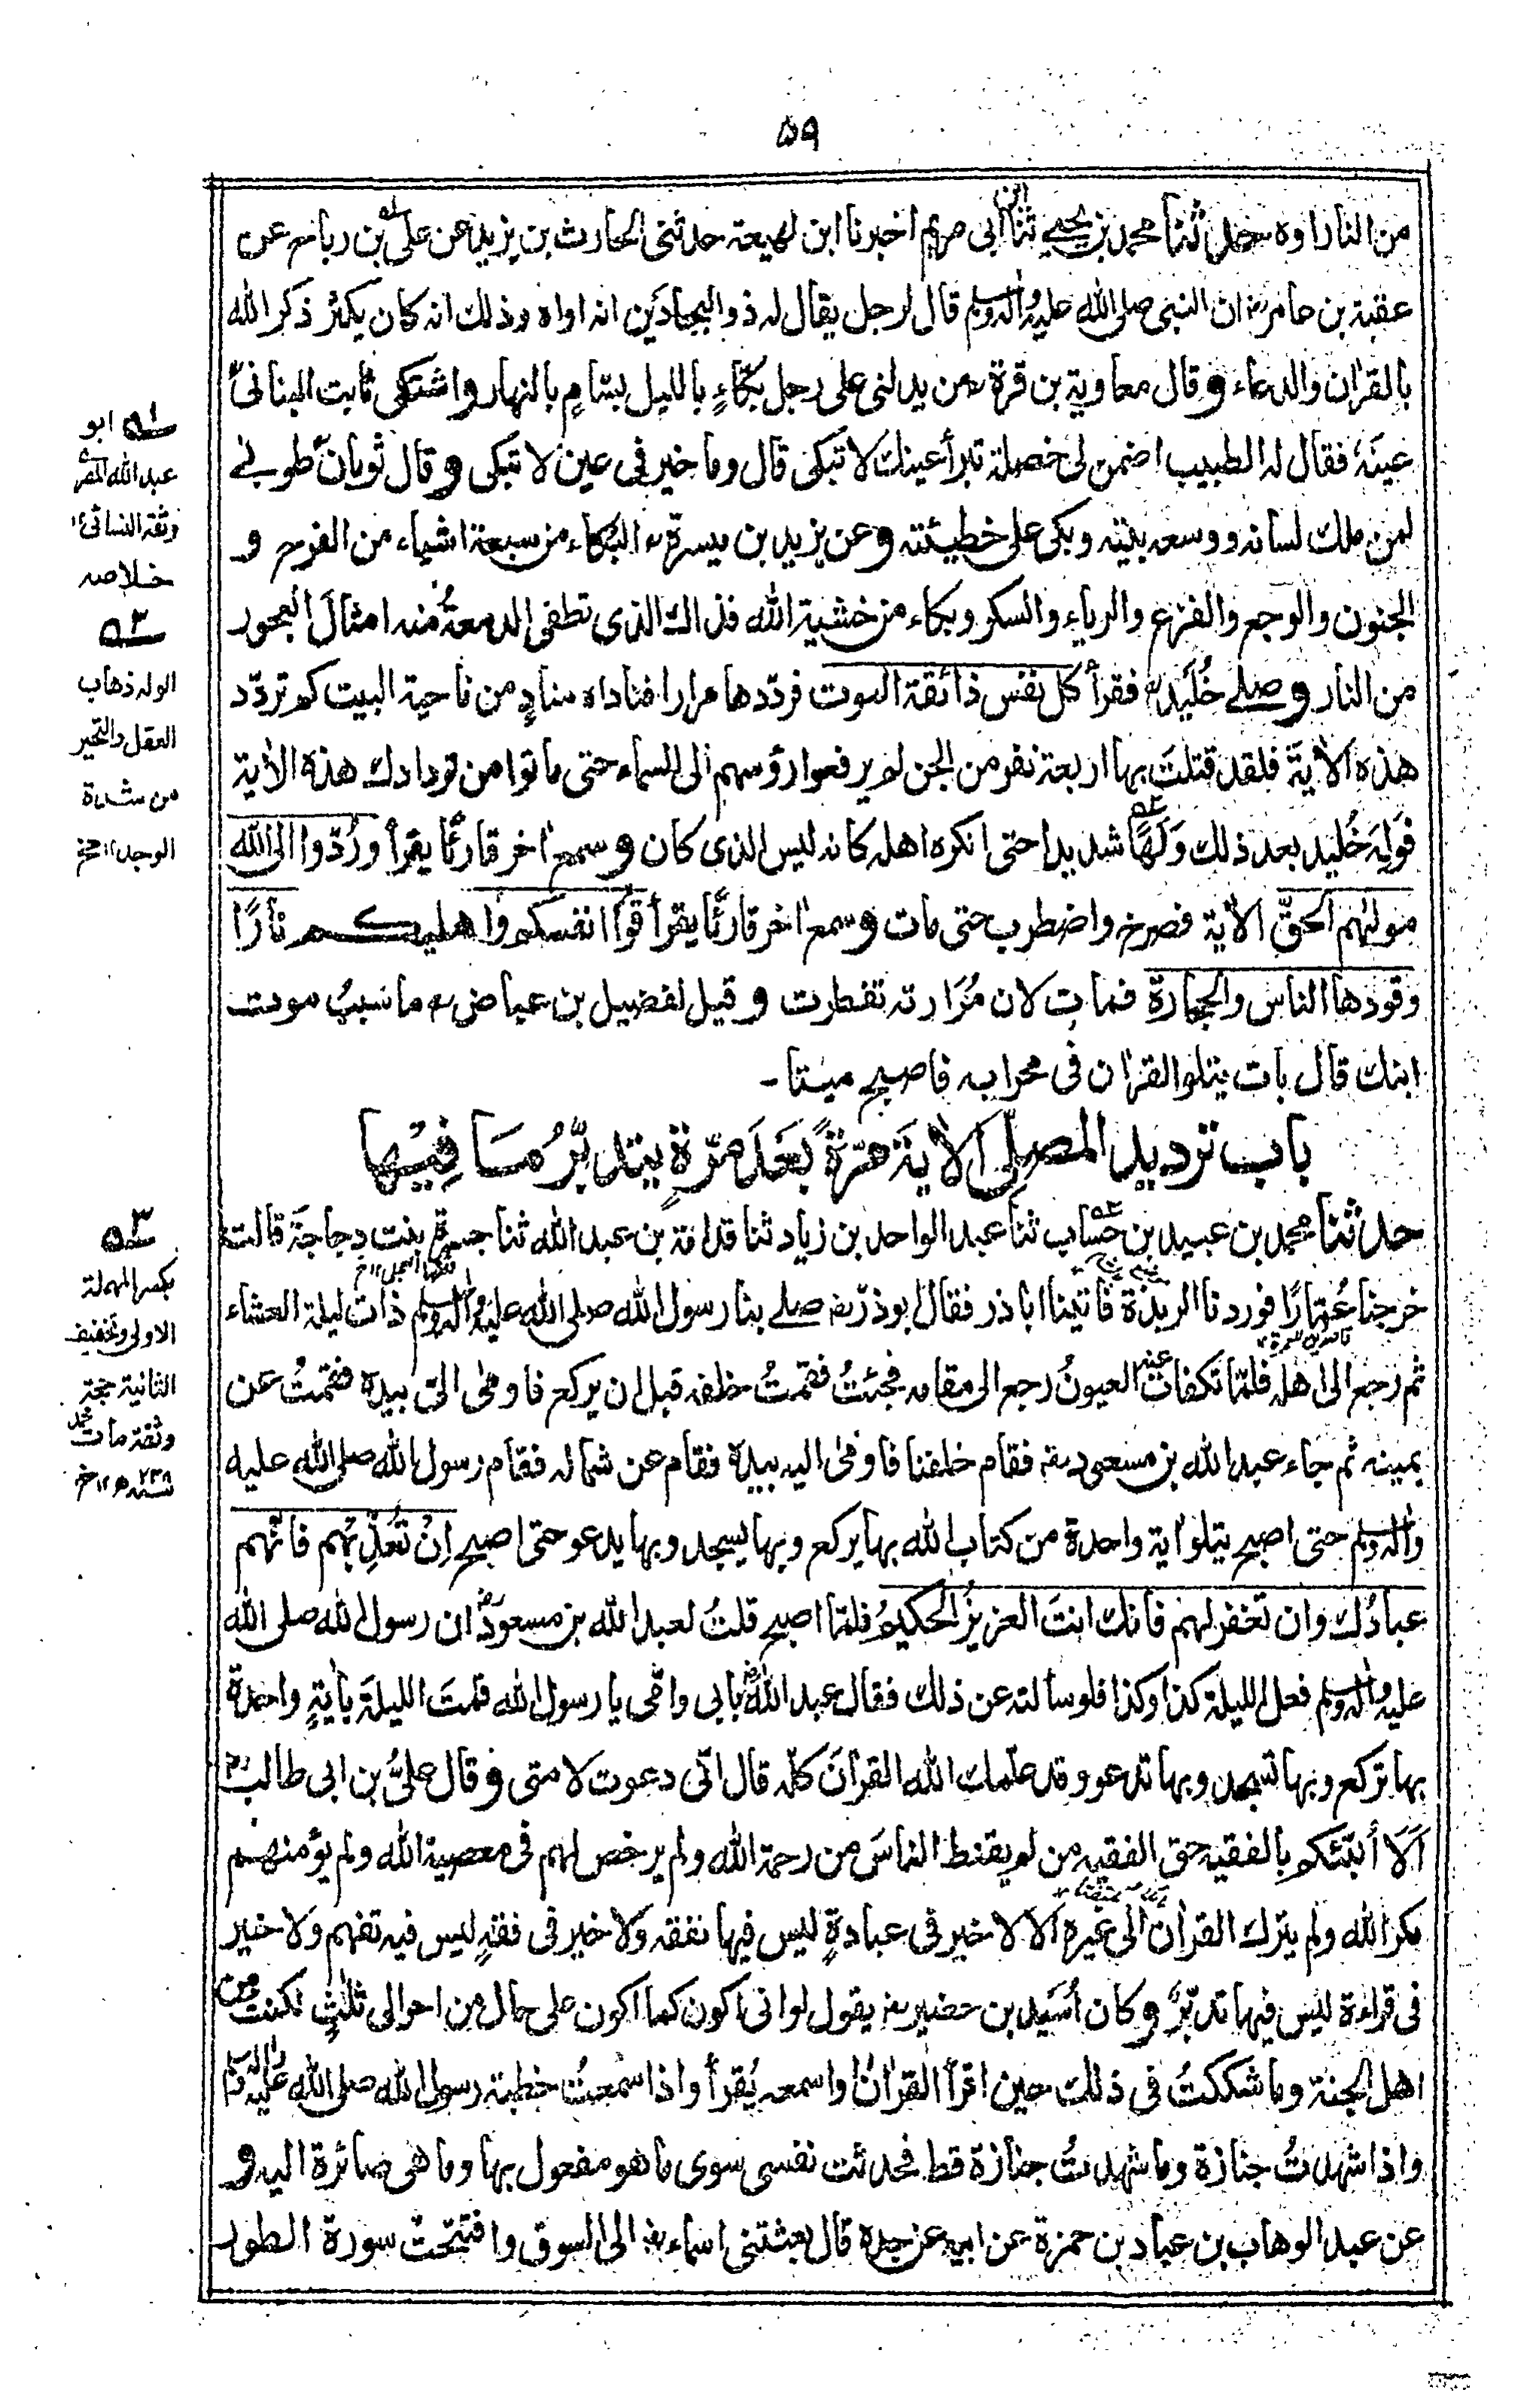 ٥٩
من النار اوه حدثنا محمد بن يحيى ثنا ابن ابى مريم اخبرنا ابن لهيعة حدثنى الحارث بن يزيد عن على بن رباح عن
عقبة بن عامرؓ ان النبى صلى الله عليه واله وسلم قال لرجل يقال له ذو البجادَين انه اواه وذلك انه كان يكثر ذكر الله
بالقراٰن والدعاء وقال معاوية بن قرة من يدلنى على رجل بكّاءٍ بالليل بسّامٍ بالنهار واشتكى ثابت البنانىؒ
عينَه فقال له الطبيب اضمن لى خصلة تبرأ عيناك لا تبكى قال وما خير فى عين لا تبكى وقال ثوبانؓ طوبى
لمن ملك لسانه ووسعه بيته وبكى على خطيئته وعن يزيد بن ميسرةؒ البكاء من سبعة اشياء من الفرح و
الجنون والوجع والفزع والرياء والسكر وبكاء من خشية الله فذاك الذى تطفى الدمعةُ منه امثالَ البحور
من النار وصلى خُلَيدؒ فقرأ كل نفس ذائقة الموت فردّدها مرارا فناداه منادٍ من ناحية البيت كم تردّد
هذه الاٰيةَ فلقد قتلتَ بها اربعة نفر من الجن لم يرفعوا رؤسهم الى السماء حتى ماتوا من تردادك هذه الاٰية
فَوَلِهَ خُليد بعد ذلك وَلَهًا شديدا حتى انكره اهله كانه ليس الذى كان وسمع اٰخر قارئًا يقرأ ورُدّوا الى الله
مولٰهم الحقِّ الاٰية فصرخ واضطرب حتى مات وسمع اٰخر قارئًا يقرأ قُوْا انفسكم واهليكم نارًا
وقودها الناس والحجارة فمات لان مَرَارته تفطرت وقيل لفضيل بن عياضؒ ما سببُ موت
ابنك قال بات يتلو القراٰن فى محرابه فاصبح ميتا -
باب ترديد المصلّى الاٰيةَ مرّةً بَعْدَ مرّةٍ يتدبّرُ مَا فِيْها
حدثنا محمد بن عبيد بن حساب ثنا عبد الواحد بن زياد ثنا قدامة بن عبد الله ثنا جسرة بنت دجاجة قالت
خرجنا عُمّارًا فوردنا الربذة فاتينا اباذر فقال ابوذرؓ صلى بنا رسول الله صلى الله عليه واله وسلم ذات ليلة العشاء
ثم رجع الى اهله فلمّا تكفات عنه العيونُ رجع الى مقامه فجئتُ فقمتُ خلفه قبل ان يركع فاومىٰ الىّ بيده فقمتُ عن
يمينه ثم جاء عبد الله بن مسعودؓ فقام خلفنا فاومىٰ اليه بيده فقام عن شماله فقام رسول الله صلى الله عليه
واله وسلم حتى اصبح يتلو اٰية واحدة من كتاب الله بها يركع وبها يسجد وبها يدعو حتى اصبح اِنْ تُعَذِّبْهم فانّهم
عبادُك وان تغفر لهم فانك انتَ العزيزُ الحكيمُ فلمّا اصبح قلتُ لعبد الله بن مسعودؓ ان رسول الله صلى الله
عليه واله وسلم فعل الليلة كذا وكذا فلو سالته عن ذلك فقال عبد اللهؓ بابى وامّى يا رسول الله قمتَ الليلةَ باٰيةٍ واحدة
بها تركع وبها تسجد وبها تدعو وقد علّمك الله القراٰنَ كلّه قال انّى دعوت لامتى وقال علىُّ بن ابى طالبؓ
اَلَا أُنبّئكم بالفقيه حق الفقيه من لم يقنط الناسَ من رحمة الله ولم يرخص لهم فى معصية الله ولم يؤمنهم
مكر الله ولم يترك القراٰن الى غيره اَلَا لا خير فى عبادةٍ ليس فيها تفقه ولا خير فى فقهٍ ليس فيه تفهم ولا خير
فى قراءة ليس فيها تدبّرٌ وكان اُسَيد بن حضيرؓ يقول لو انى اكون كما اكون على حال من احوالى ثلٰثٍ لكنت من
اهل الجنة وما شككتُ فى ذلك حين اقرأ القراٰن واسمعه يُقرأ واذا سمعتُ خطبة رسول الله صلى الله عليه واله وسلم
واذا شهدتُ جنازة وما شهدتُ جنازة قط فحدثت نفسى سوى ما هو مفعول بها وما هى صائرة اليه و
عن عبد الوهاب بن عباد بن حمزة عن ابيه عن جده قال بعثتنى اسماءؓ الى السوق وافتتحت سورة الطور
ل١ ابو
عبد الله
وثقه النسائى ١٢
خلاصه
ل٢
الوله ذهاب
العقل والتحير
من شدة
الوجد ١٢
ل٣
بكسر المهملة
الاولى وتخفيف
الثانية حجة
وثقة مات
٢٣٨ھ ١٢